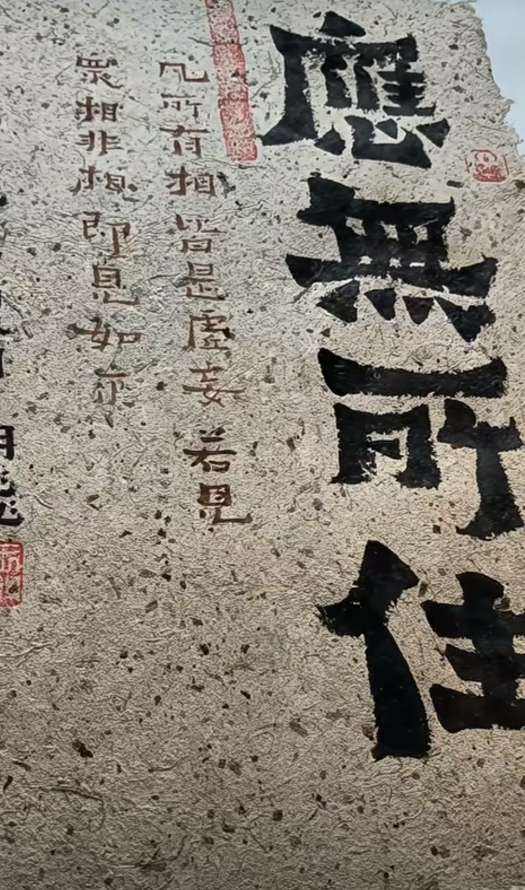 應無所住
凡所有相皆是虚妄若見
眾相非相即見如来